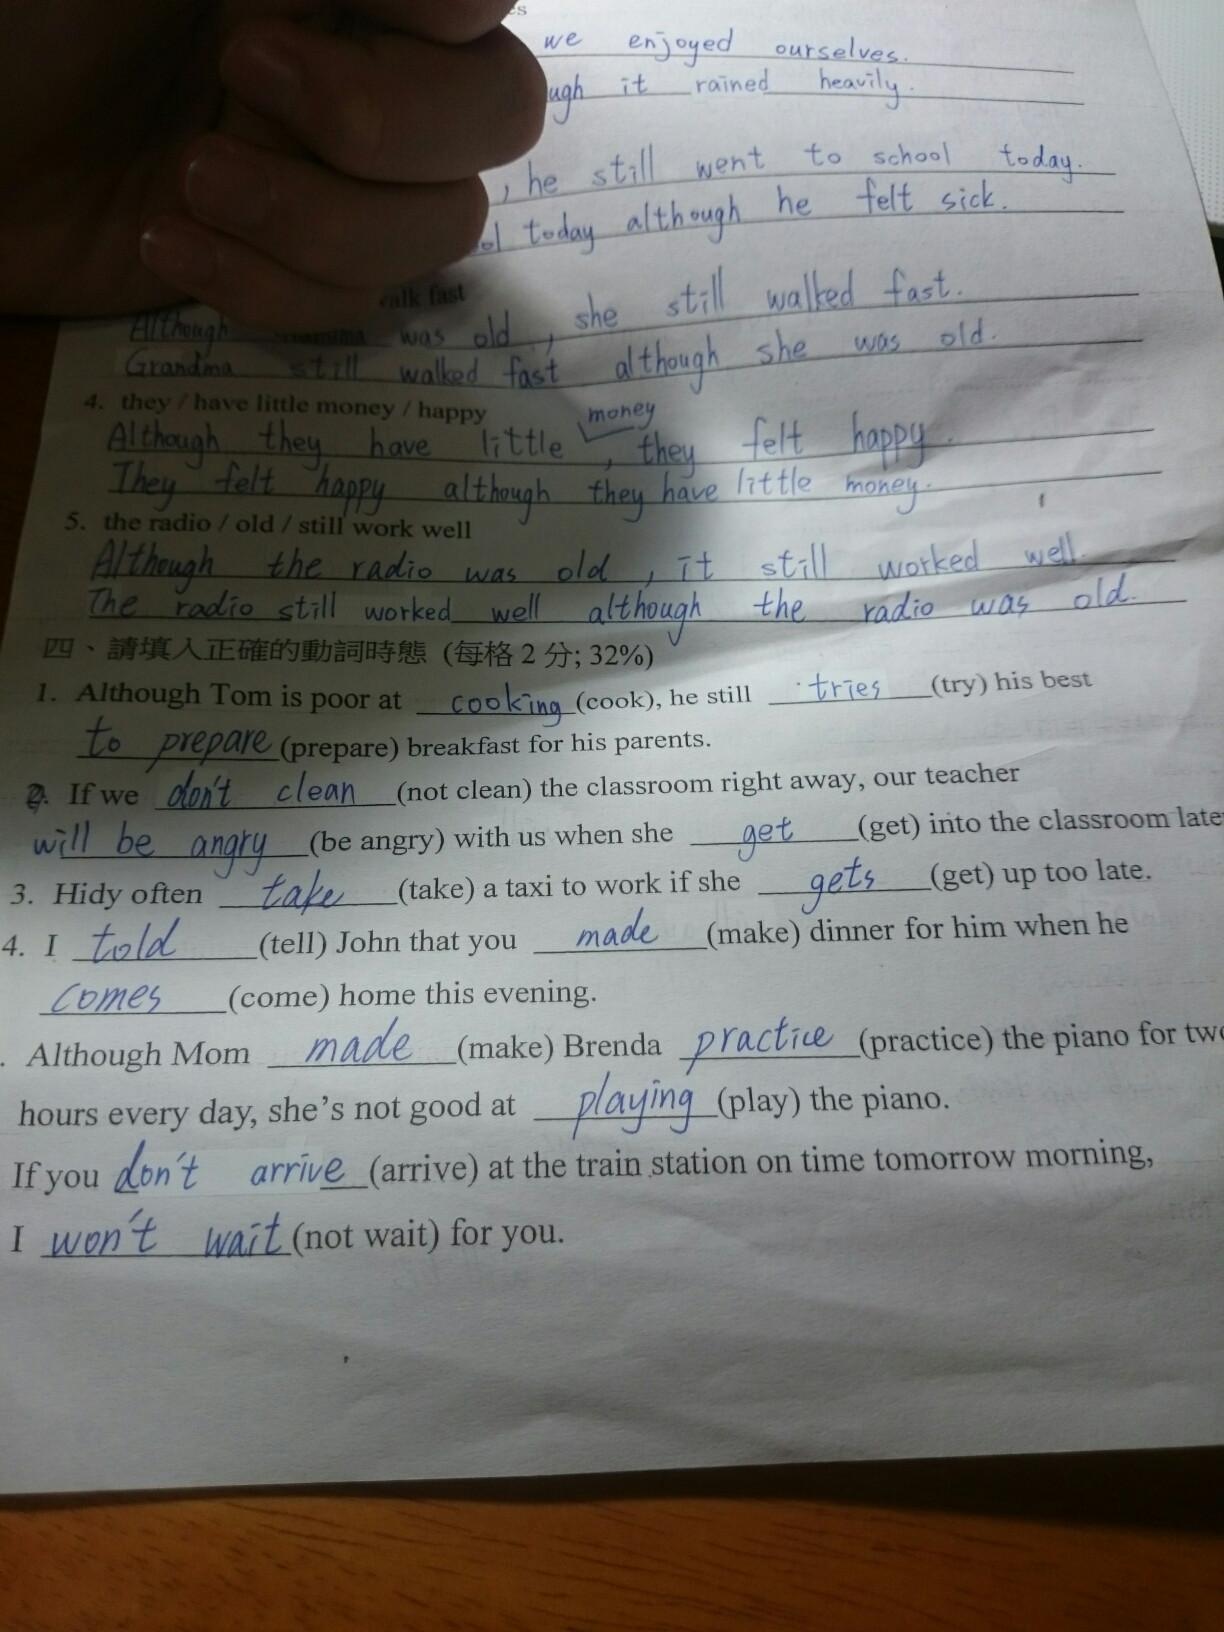 we enjoyed ourselves.
it rained heavily.
, he still went to school today.
today although he felt sick.
walk fast
Although was old, she still walked fast.
Grandma still walked fast although she was old.
4. they / have little money / happy
Although they have little money, they felt happy.
They felt happy although they have little money.
5. the radio / old / still work well
Although the radio was old, it still worked well.
The radio still worked well although the radio was old.
四、請填入正確的動詞時態 (每格 2 分; 32%)
1. Although Tom is poor at cooking (cook), he still tries (try) his best
to prepare (prepare) breakfast for his parents.
2. If we don't clean (not clean) the classroom right away, our teacher
will be angry (be angry) with us when she get (get) into the classroom
3. Hidy often take (take) a taxi to work if she gets (get) up too late.
4. I told (tell) John that you made (make) dinner for him when he
comes (come) home this evening.
. Although Mom made (make) Brenda practice (practice) the piano for two
hours every day, she's not good at playing (play) the piano.
If you don't arrive (arrive) at the train station on time tomorrow morning,
I won't wait (not wait) for you.